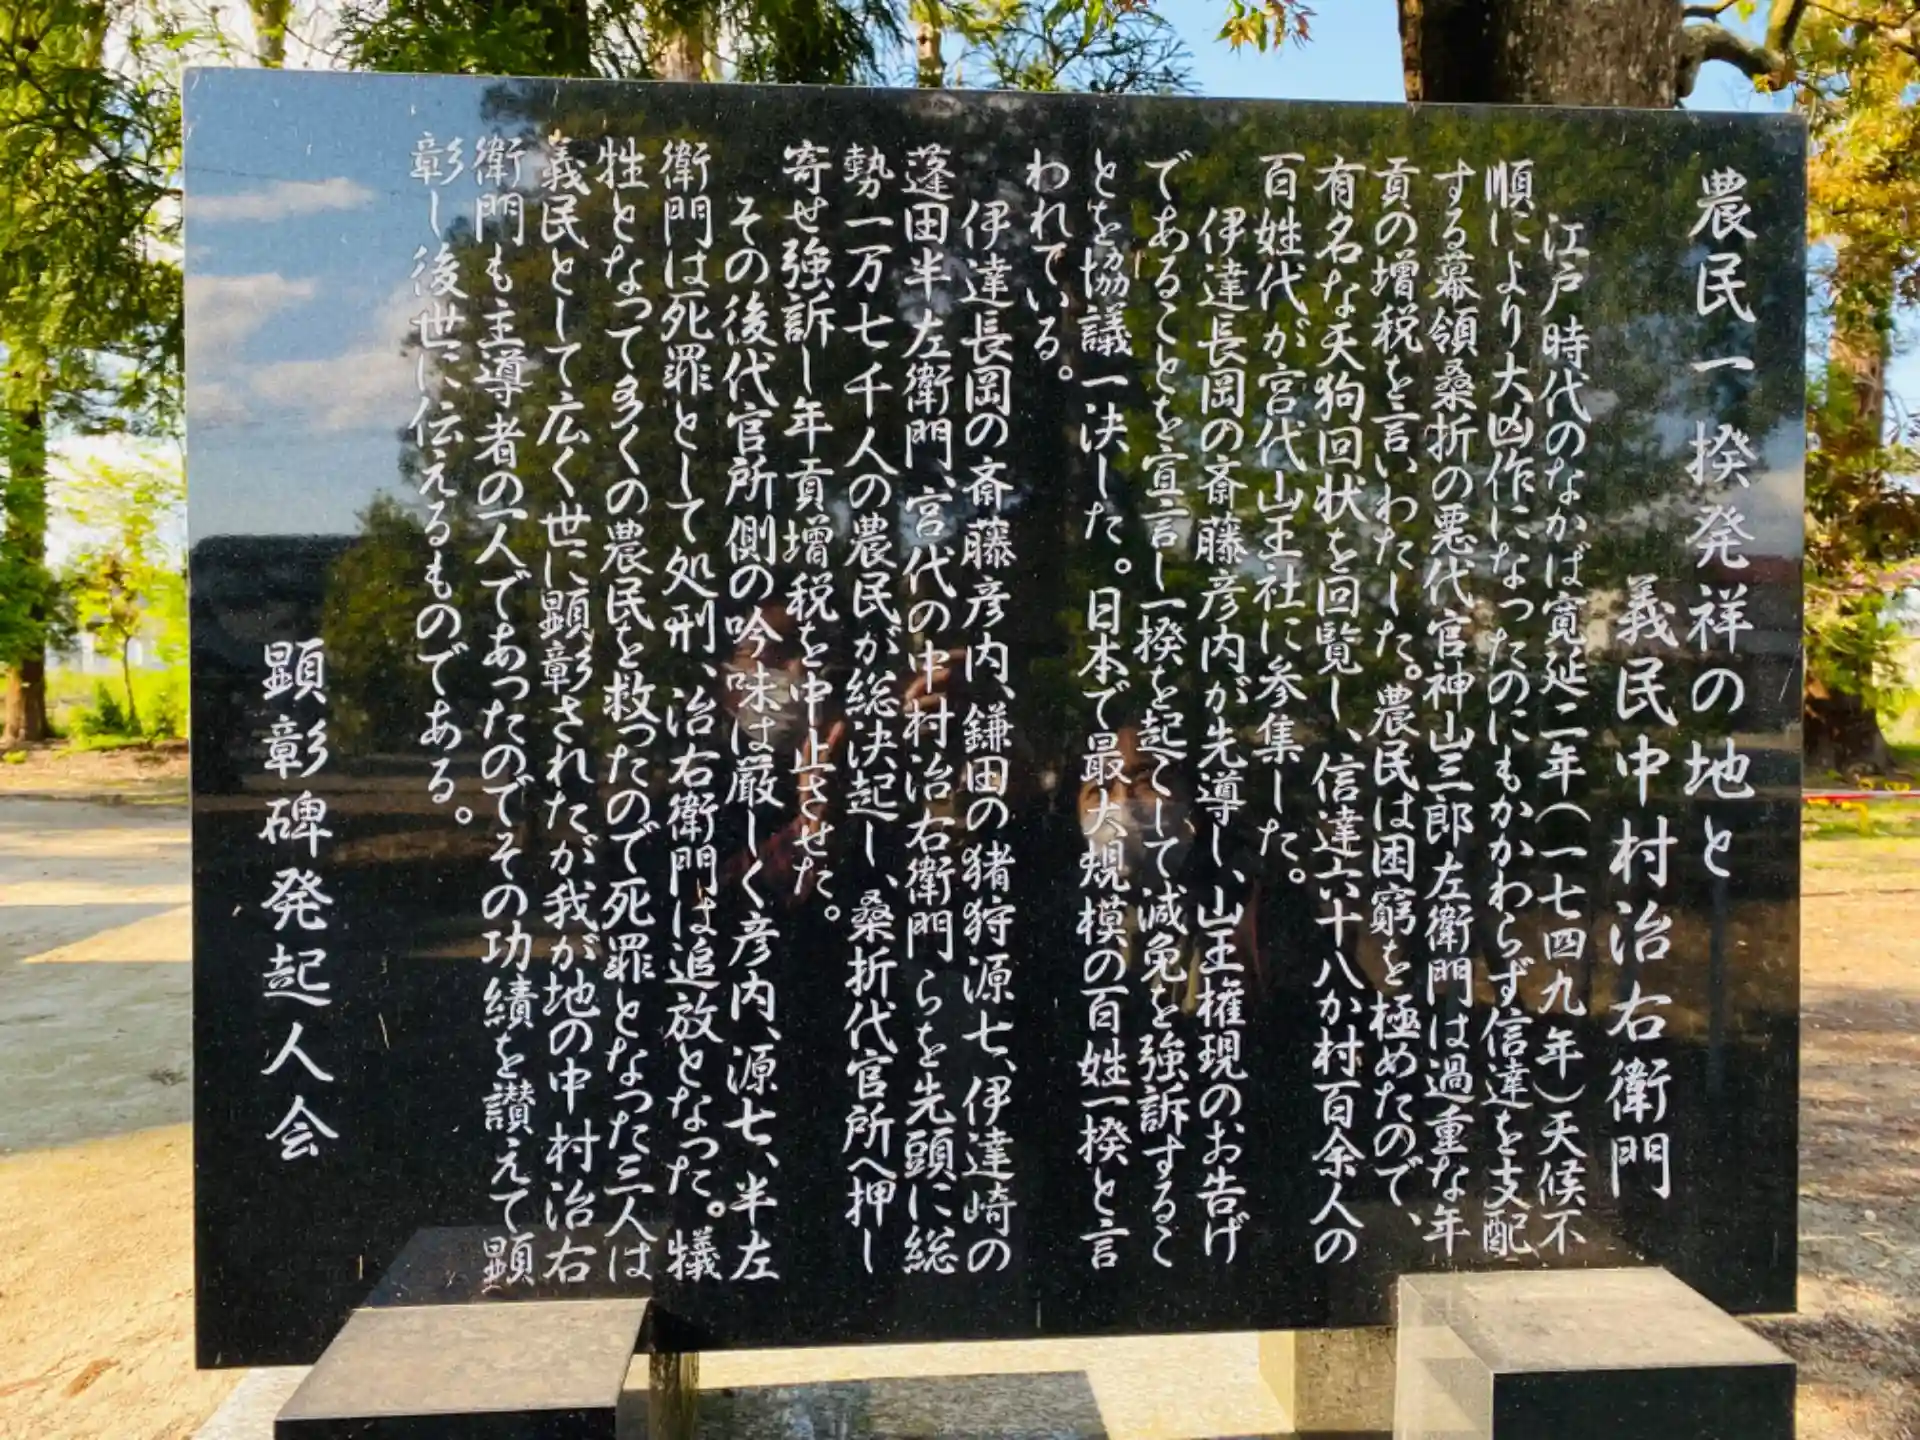 農民一揆発祥の地と
義民中村治右衛門
江戸時代のなかば寛延二年(一七四九年)天候不
順により大凶作になったのにもかかわらず信達を支配
する幕領桑折の悪代官神山三郎左衛門は過重な年
貢の増税を言いわたした。農民は困窮を極めたので、
有名な天狗回状を回覧し、信達六十八か村百余人の
百姓代が宮代山王社に参集した。
伊達長岡の斎藤彦内が先導し、山王権現のお告げ
であることを宣言し一揆を起こして減免を強訴するこ
とを協議一決した。日本で最大規模の百姓一揆と言
われている。
伊達長岡の斎藤彦内、鎌田の猪狩源七、伊達崎の
蓬田半左衛門、宮代の中村治右衛門らを先頭に総
勢一万七千人の農民が総決起し、桑折代官所へ押し
寄せ強訴し年貢増税を中止させた。
その後代官所側の吟味は厳しく彦内、源七、半左
衛門は死罪として処刑、治右衛門は追放となった。犠
牲となって多くの農民を救ったので死罪となった三人は
義民として広く世に顕彰されたが我が地の中村治右
衛門も主導者の一人であったのでその功績を讃えて顕
彰し後世に伝えるものである。
顕彰碑発起人会